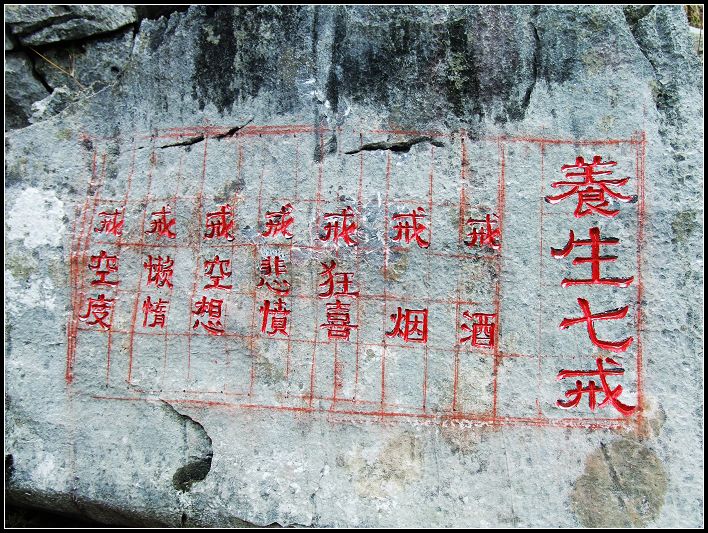 養生七戒
戒酒
戒烟
戒狂喜
戒悲憤
戒空想
戒懒惰
戒空度